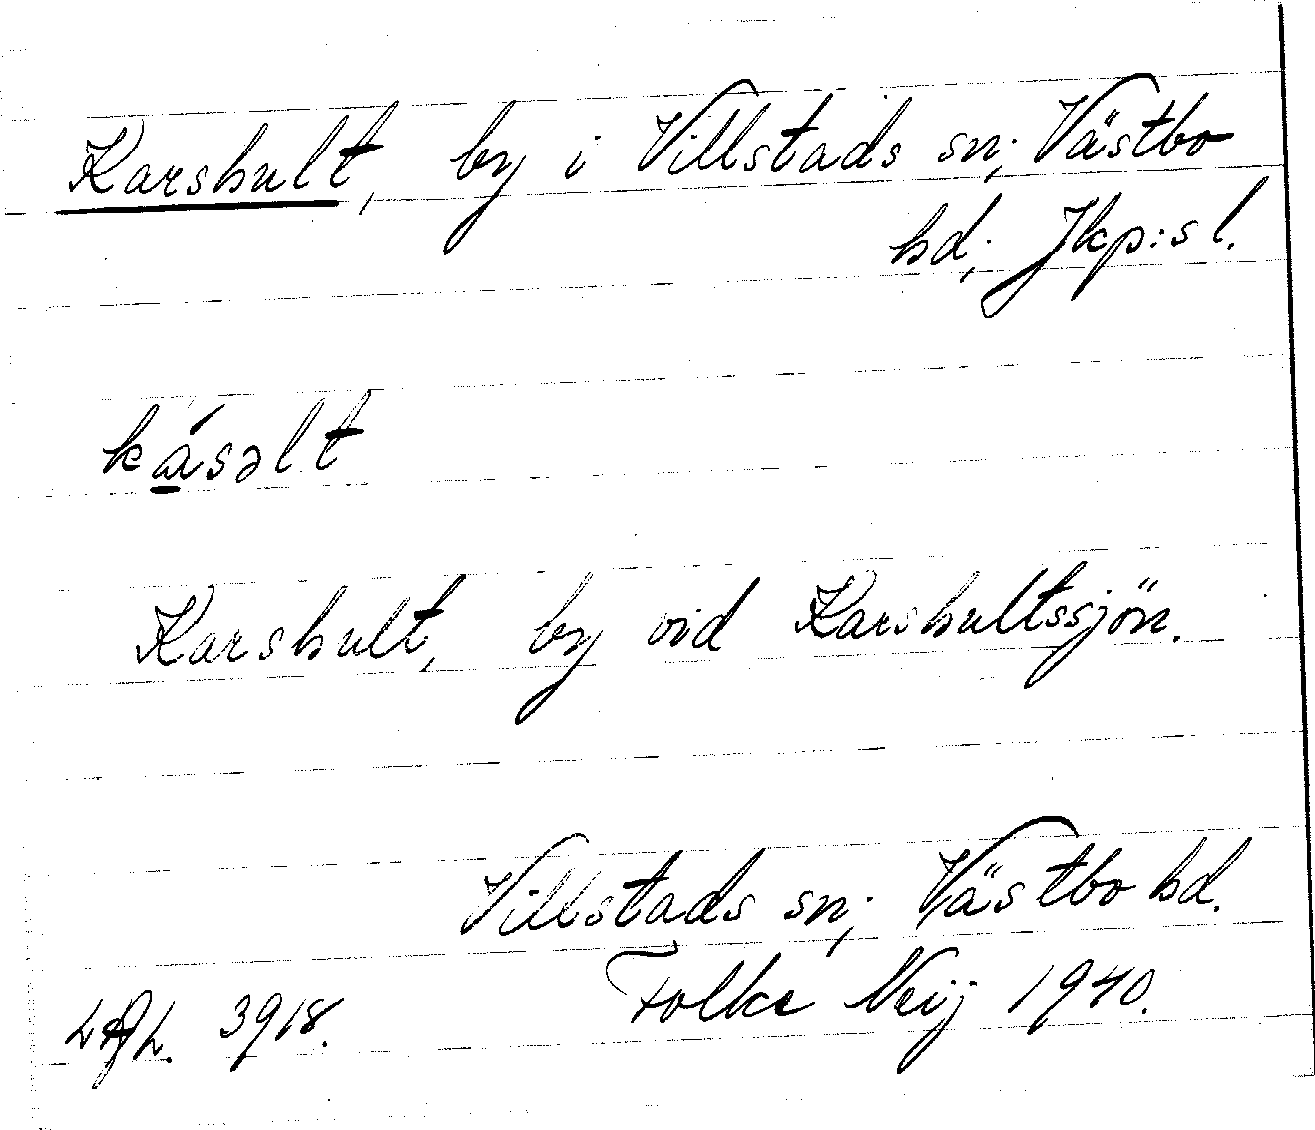 Karshult, by i Villstads sn; Västbo
hd; Jkp:s l.
kásəlt
Karshult, by vid Karshultssjön.
Villstads sn; Västbo hd.
Folke Neij 1940.
3918.